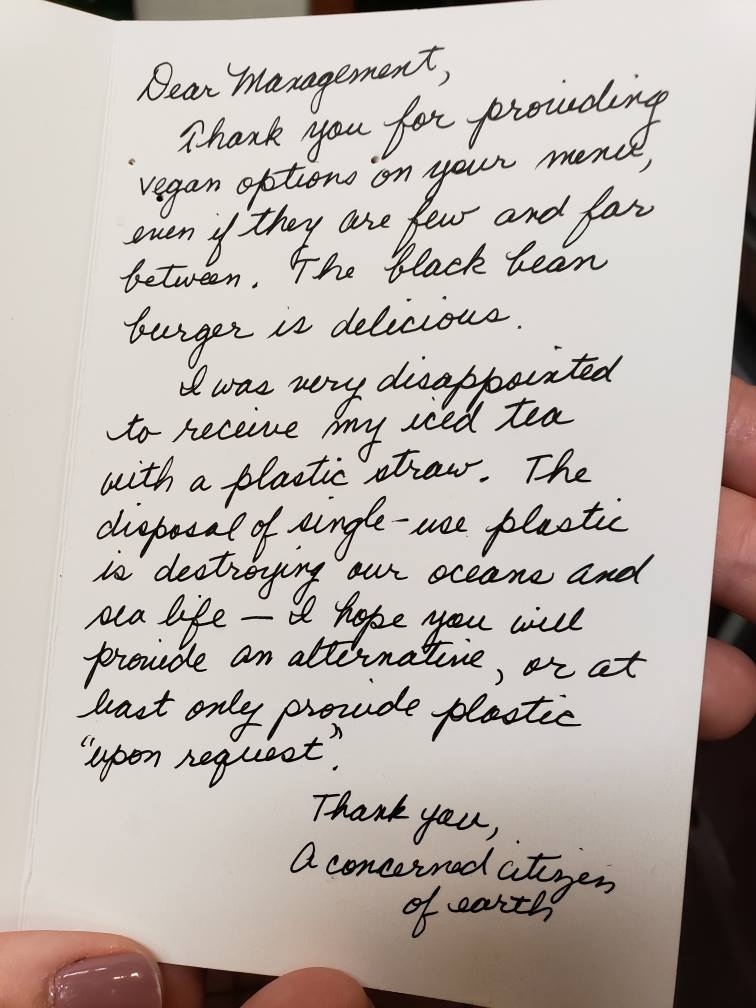 Dear Management,
Thank you for providing
vegan options on your menu,
even if they are few and far
between. The black bean
burger is delicious.
I was very disappointed
to receive my iced tea
with a plastic straw. The
disposal of single-use plastic
is destroying our oceans and
sea life — I hope you will
provide an alternative, or at
least only provide plastic
"upon request".
Thank you,
A concerned citizen
of earth